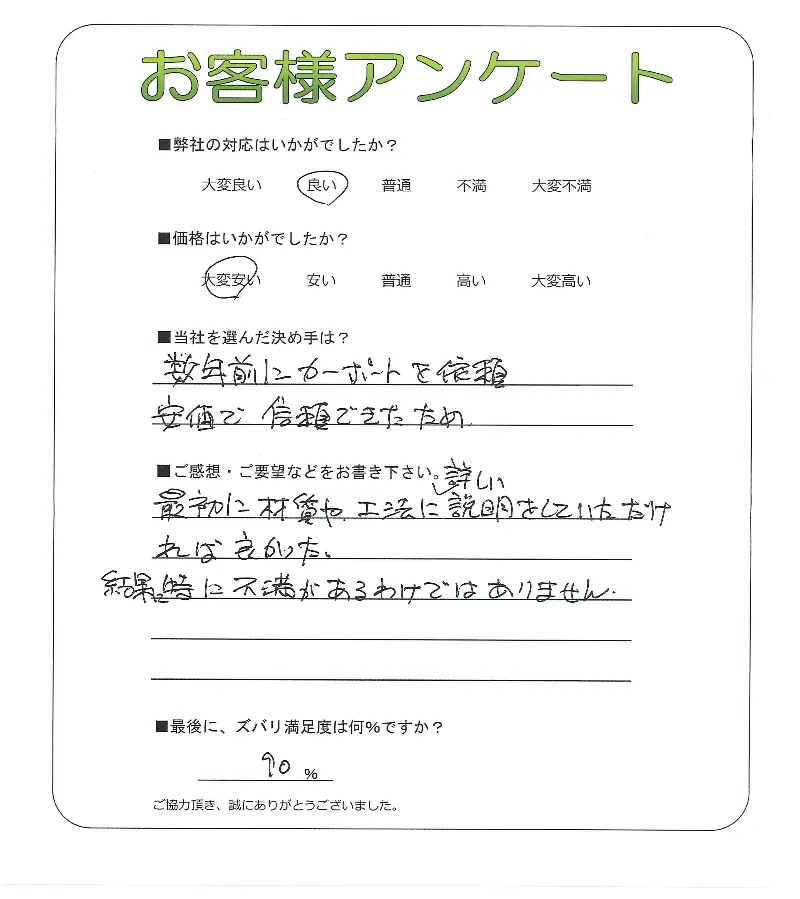 お客様アンケート
■弊社の対応はいかがでしたか?
大変良い 良い 普通 不満 大変不満
■価格はいかがでしたか?
大変安い 安い 普通 高い 大変高い
■当社を選んだ決め手は?
数年前にカーポートを依頼
安価で信頼できたため
■ご感想・ご要望などをお書き下さい。
詳しい
最初に材質や、工法に説明をしていただけ
れば良かった、
結果に特に不満があるわけではありません.
■最後に、ズバリ満足度は何%ですか?
90 %
ご協力頂き、誠にありがとうございました。